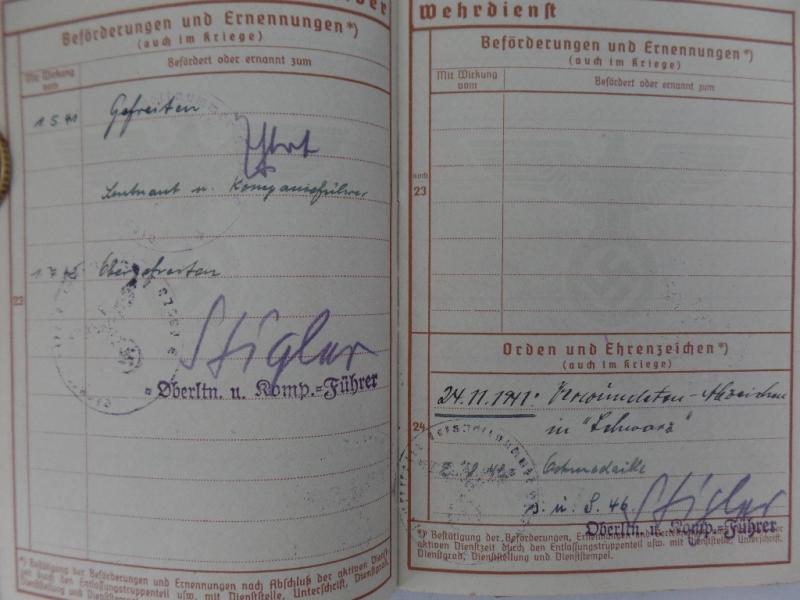 Beförderungen und Ernennungen*)
(auch im Kriege)
Mit Wirkung vom
Befördert oder ernannt zum
1 5.41 Gefreiten
Leutnant u. Kompanieführer
Obergefreiten
23
Stigler
Oberltn. u. Komp.-Führer
*) Bestätigung der Beförderungen und Ernennungen nach Abschluß der aktiven
durch den Entlassungstruppenteil usw. mit Dienststelle, Unterschrift, Dienstgrad,
und Dienststempel.
Wehrdienst
Beförderungen und Ernennungen*)
(auch im Kriege)
Mit Wirkung vom
Befördert oder ernannt zum
noch
23
Orden und Ehrenzeichen*)
(auch im Kriege)
24.11.1941. Verwundeten-Abzeichen
in "Schwarz"
24
Ostmedaille
Stigler
Oberltn. u. Komp.-Führer
*) Bestätigung der Beförderungen, Ernennungen und
aktiven Dienstzeit durch den Entlassungstruppenteil usw. mit Dienststelle, Unterschrift,
Dienstgrad, Dienststellung und Dienststempel.